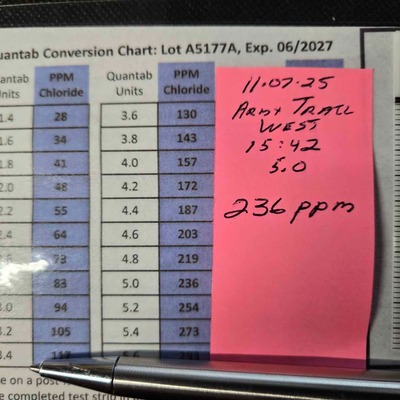 uantab Conversion Chart: Lot A5177A, Exp. 06/2027
antab Units PPM Chloride Quantab Units PPM Chloride
1.4 28 3.6 130
1.6 34 3.8 143
1.8 41 4.0 157
2.0 48 4.2 172
2.2 55 4.4 187
2.4 64 4.6 203
2.6 73 4.8 219
83 5.0 236
3.0 94 5.2 254
3.2 105 5.4 273
3.4 117 5.6 293
e on a post
e completed test strip in
11.07.25
ARMY TRAIL
WEST
15:42
5.0
236 ppm